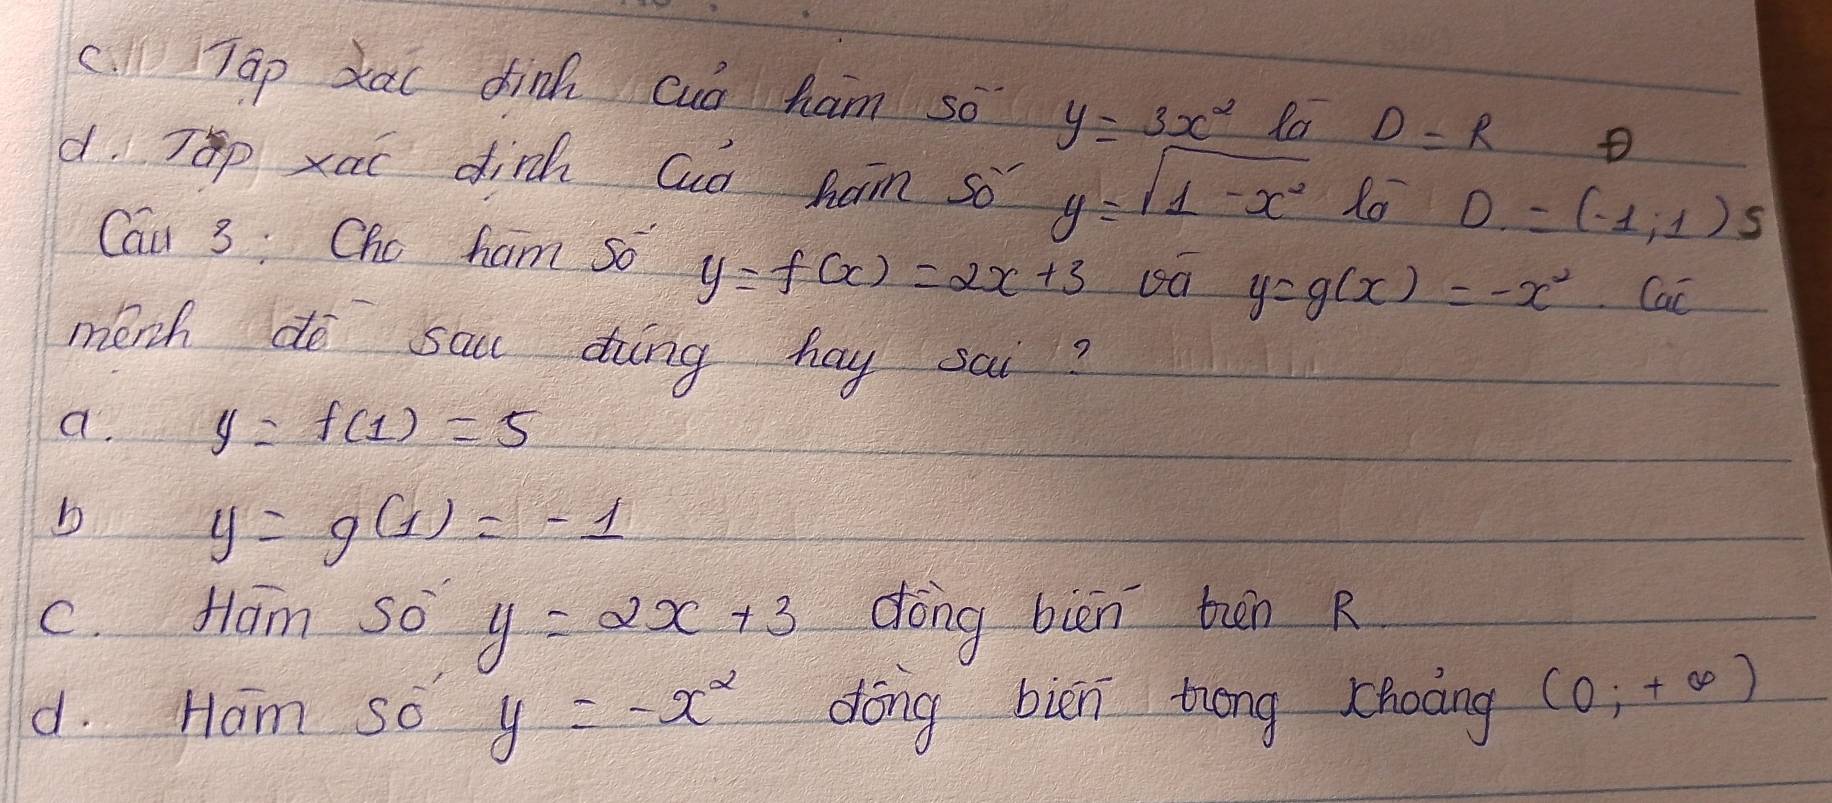 c. Tập xác định của hàm số y = 3x² là D = R Đ
d. Tập xác định của hàm số y = √(1 - x²) là D = (-1; 1) S
Câu 3: Cho hàm số y = f(x) = 2x + 3 và y = g(x) = -x². Các
mệnh đề sau đúng hay sai ?
a. y = f(1) = 5
b y = g(1) = -1
c. Hàm số y = 2x + 3 đồng biến trên R
d. Hàm số y = -x² đồng biến trong khoảng (0; +∞)